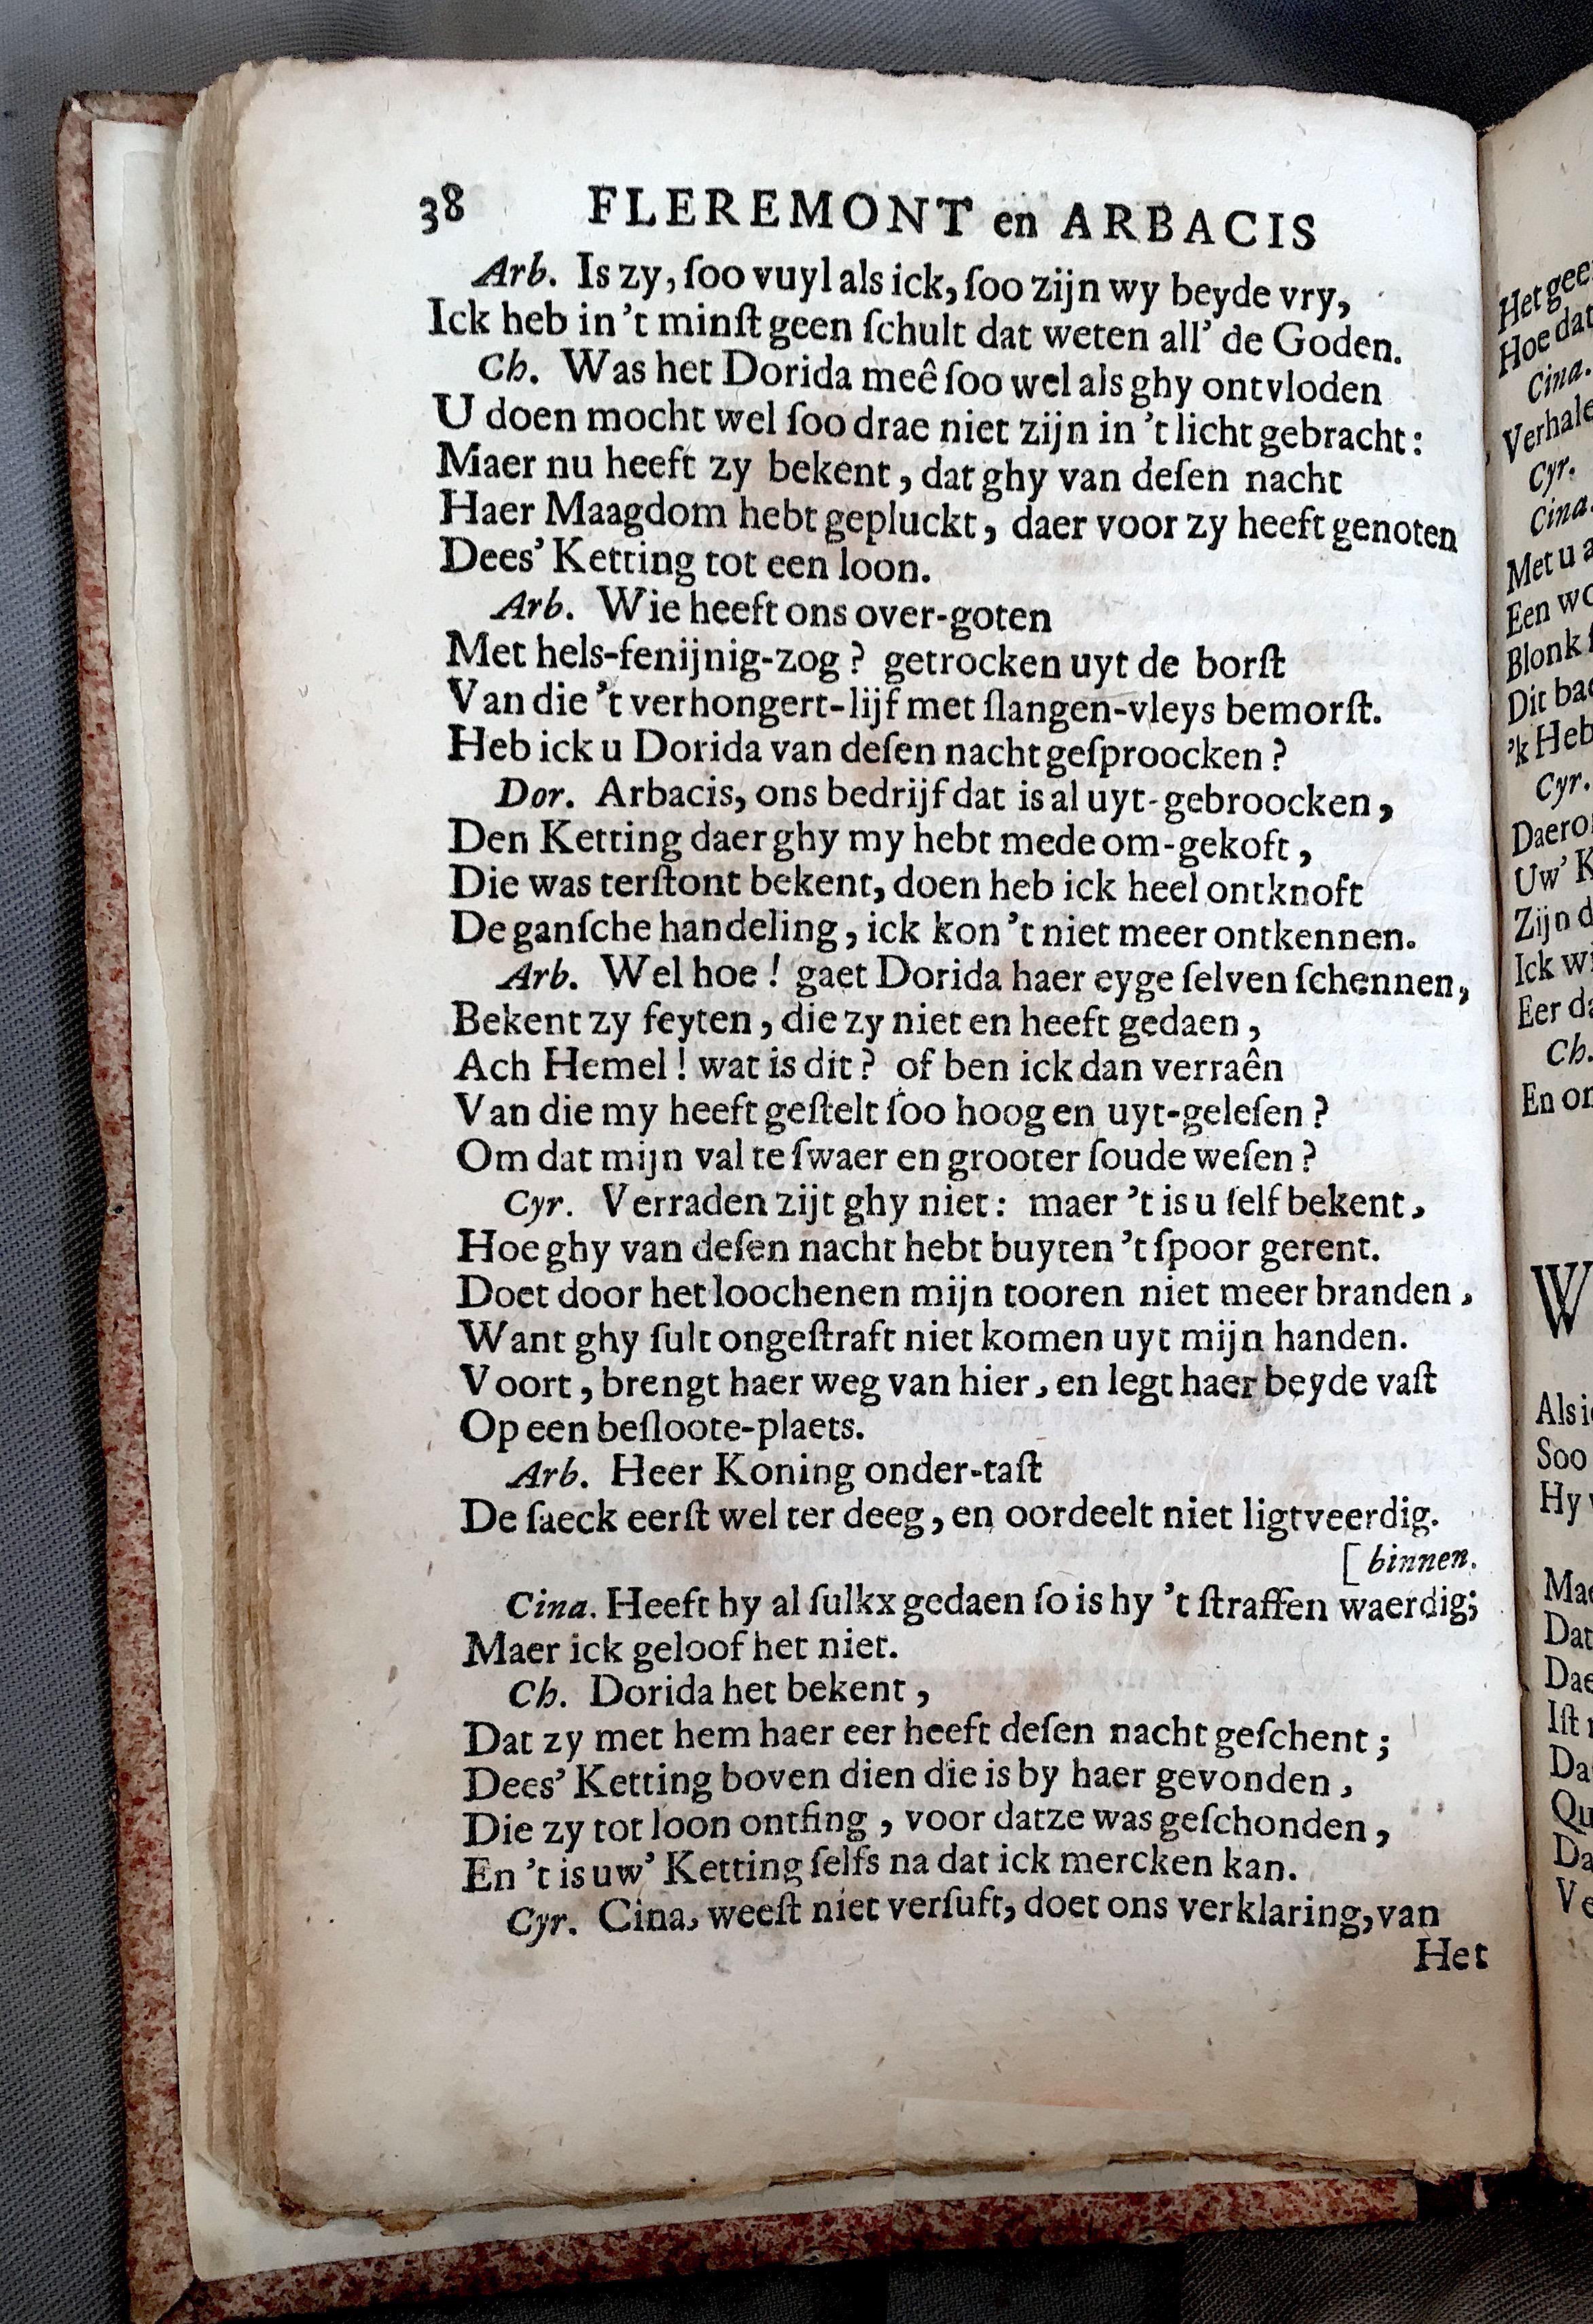 38 FLEREMONT en ARBACIS
Arb. Is zy, ſoo vuyl als ick, ſoo zijn wy beyde vry,
Ick heb in 't minſt geen ſchult dat weten all' de Goden.
Ch. Was het Dorida meê ſoo wel als ghy ontvloden
U doen mocht wel ſoo drae niet zijn in 't licht gebracht:
Maer nu heeft zy bekent, dat ghy van deſen nacht
Haer Maagdom hebt gepluckt, daer voor zy heeft genoten
Dees' Ketting tot een loon.
Arb. Wie heeft ons over-goten
Met hels-fenijnig-zog? getrocken uyt de borſt
Van die 't verhongert-lijf met ſlangen-vleys bemorſt.
Heb ick u Dorida van deſen nacht geſproocken?
Dor. Arbacis, ons bedrijf dat is al uyt-gebroocken,
Den Ketting daer ghy my hebt mede om-gekoft,
Die was terſtont bekent, doen heb ick heel ontknoft
De ganſche handeling, ick kon 't niet meer ontkennen.
Arb. Wel hoe! gaet Dorida haer eyge ſelven ſchennen,
Bekent zy feyten, die zy niet en heeft gedaen,
Ach Hemel! wat is dit? of ben ick dan verraên
Van die my heeft geſtelt ſoo hoog en uyt-geleſen?
Om dat mijn val te ſwaer en grooter ſoude weſen?
Cyr. Verraden zijt ghy niet: maer 't is u ſelf bekent,
Hoe ghy van deſen nacht hebt buyten 't ſpoor gerent.
Doet door het loochenen mijn tooren niet meer branden,
Want ghy ſult ongeſtraft niet komen uyt mijn handen.
Voort, brengt haer weg van hier, en legt haer beyde vaſt
Op een beſloote-plaets.
Arb. Heer Koning onder-taſt
De ſaeck eerſt wel ter deeg, en oordeelt niet ligtveerdig.
[binnen.
Cina. Heeft hy al ſulkx gedaen ſo is hy 't ſtraffen waerdig;
Maer ick geloof het niet.
Ch. Dorida het bekent,
Dat zy met hem haer eer heeft deſen nacht geſchent;
Dees' Ketting boven dien die is by haer gevonden,
Die zy tot loon ontfing, voor datze was geſchonden,
En 't is uw' Ketting ſelfs na dat ick mercken kan.
Cyr. Cina, weeſt niet verſuft, doet ons verklaring, van
Het
Hoe dat
Cina.
Cyr.
Cina.
Met u
Een
Blonk
Dit
'k Heb
Cyr.
Uw'
Zijn
Ick
Eer
Ch.
En
W
Als
Soo
Hy
Dat